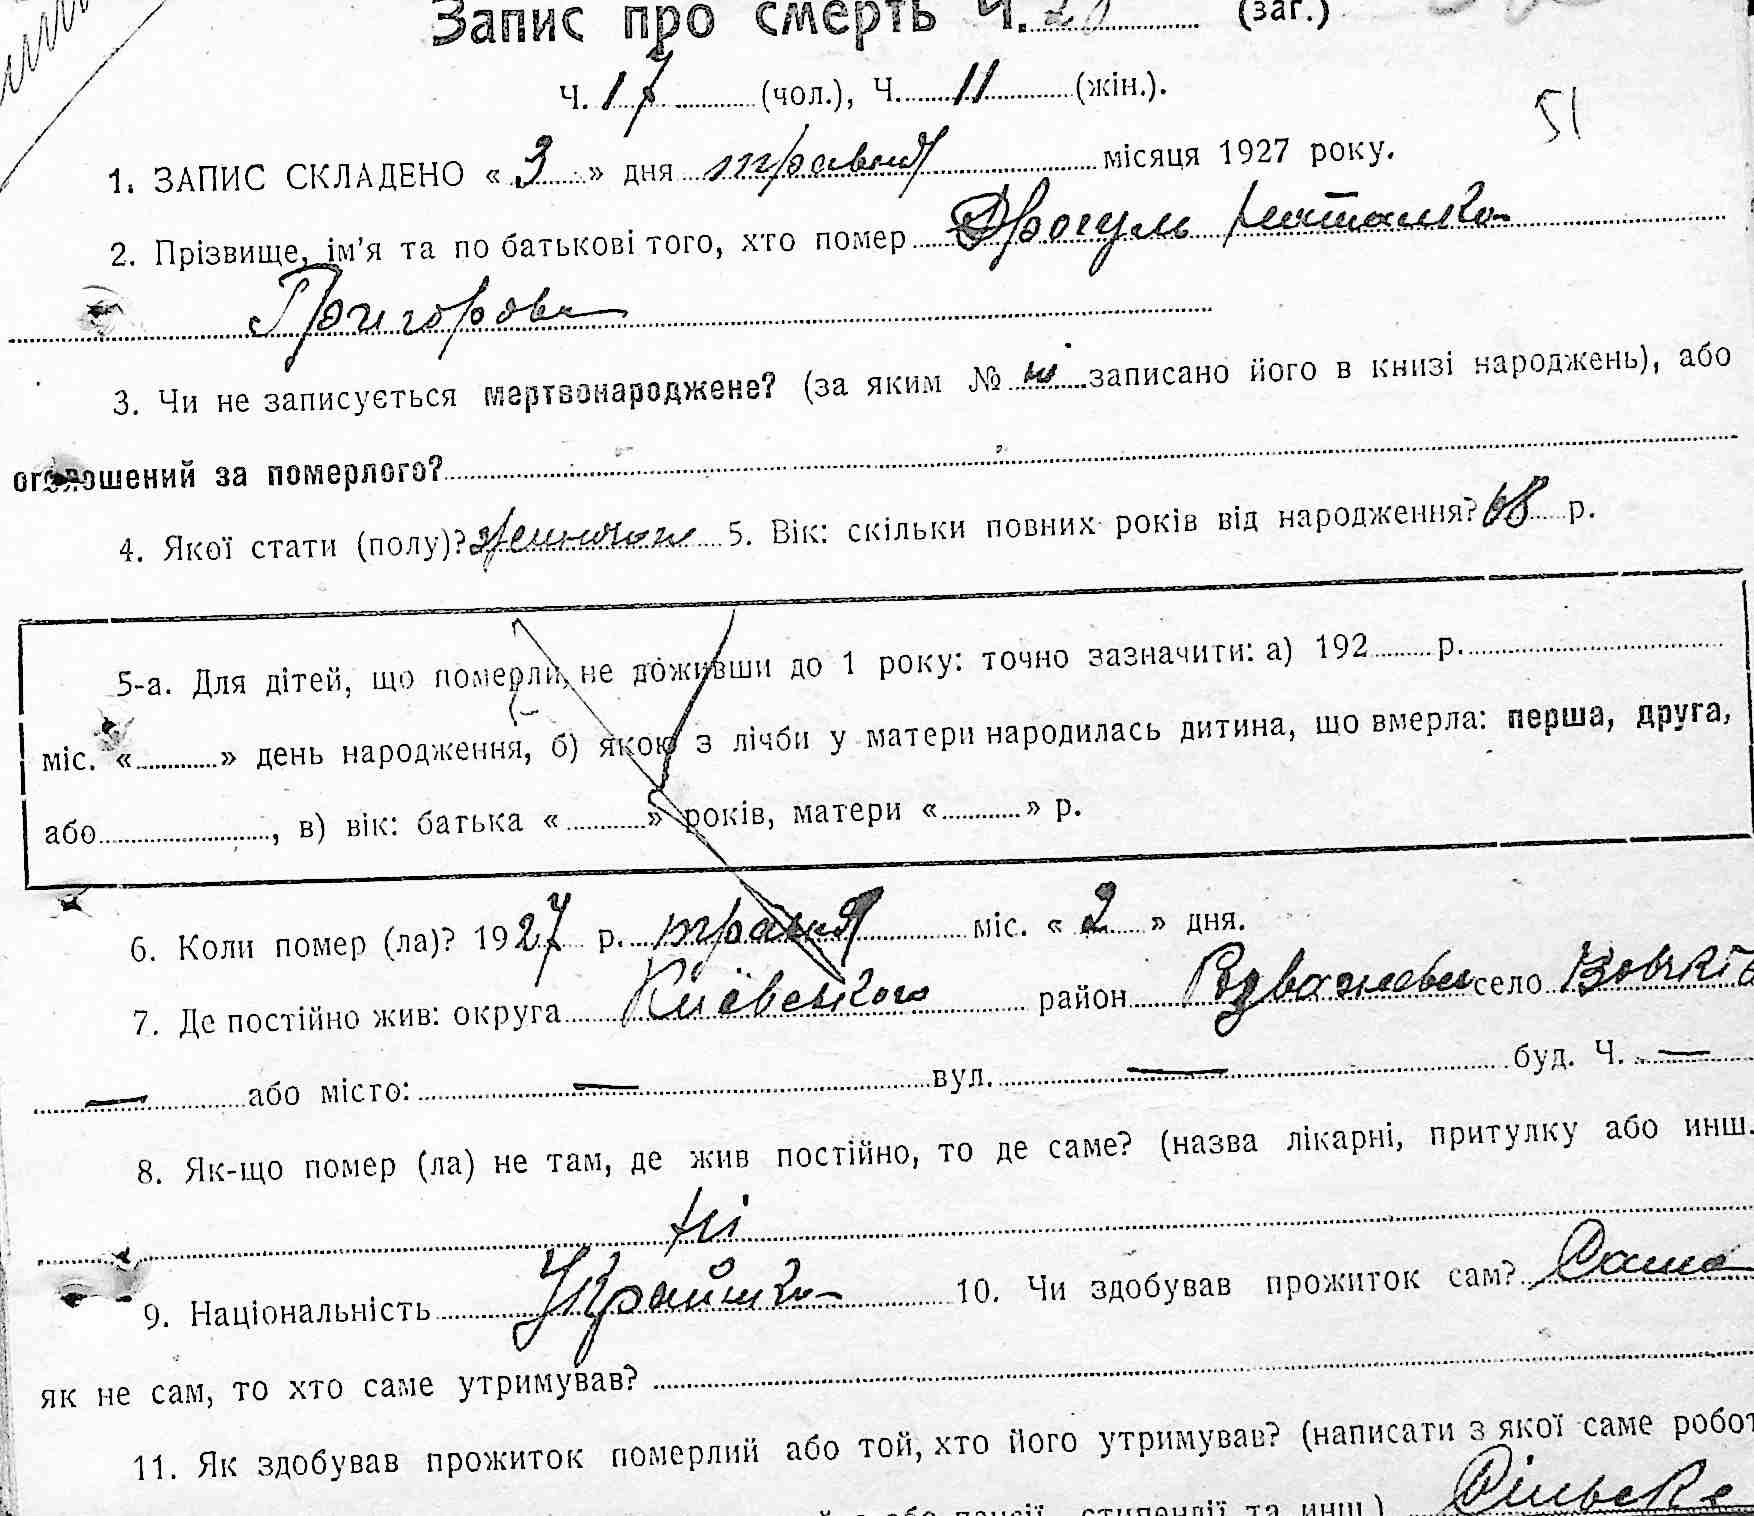 Запис про смерть Ч. 28 (заг.)
Ч. 17 (чол.), Ч. 11 (жін.).
51
1. ЗАПИС СКЛАДЕНО « 3 » дня травня місяця 1927 року.
2. Прізвище, ім'я та по батькові того, хто помер Дрогуль Наталка
Григорова
3. Чи не записується мертвонароджене? (за яким № ні записано його в книзі народжень), або
оголошений за померлого?
4. Якої стати (полу)? жиночои 5. Вік: скільки повних років від народження? 68 р.
5-а. Для дітей, що померли, не доживши до 1 року: точно зазначити: а) 192 р.
міс. « » день народження, б) якою з лічби у матери народилась дитина, що вмерла: перша, друга,
або , в) вік: батька « » років, матери « » р.
6. Коли помер (ла)? 1927 р. травня міс. « 2 » дня.
7. Де постійно жив: округа Киевського район село
— або місто: — вул. — буд. Ч. —
8. Як-що помер (ла) не там, де жив постійно, то де саме? (назва лікарні, притулку або инш.
Ні
9. Національність Українка 10. Чи здобував прожиток сам? Сама
як не сам, то хто саме утримував?
11. Як здобував прожиток померлий або той, хто його утримував? (написати з якої саме робот
або пенсії, стипендії та инш.) Сільске